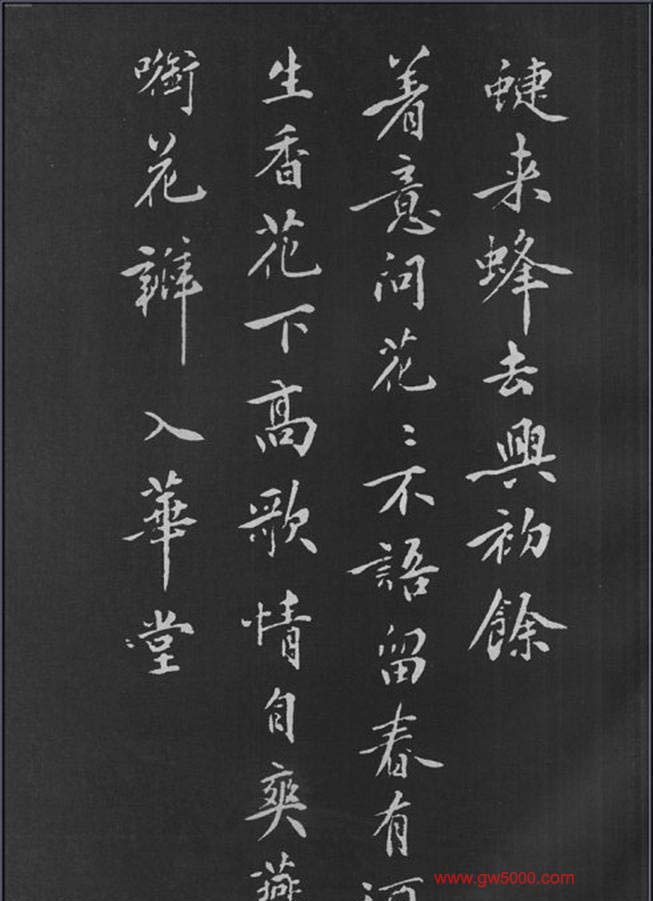 蜨来蜂去興初餘
着意问花〻不語留春有
生香花下高歌情自爽燕
㘅花瓣入華堂
www.gw5000.com